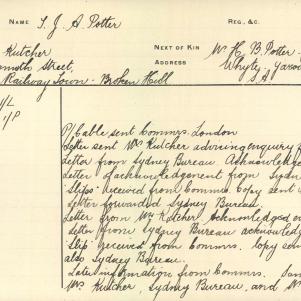 NAME T. J. A. Potter REG. &C.
Kutcher NEXT OF KIN W. H. B. Potter
Street, ADDRESS Whyte-
Railway Town - Broken Hill S.A
P/Cable sent Commrs. London
Letter sent Mrs Kutcher advising enquiry
Letter from Sydney Bureau. Acknowledged
Letter of acknowledgement from Sydn
"Slips" received from Comms. Copy sent
Letter forwarded Sydney Bureau.
Letter from Mrs Kutcher. Acknowledged
Letter from Sydney Bureau acknowledg
"Slip" received from Comms. Copy sen
also Sydney Bureau.
Later information from Comms.
Mrs Kutcher, Sydney Bureau, and